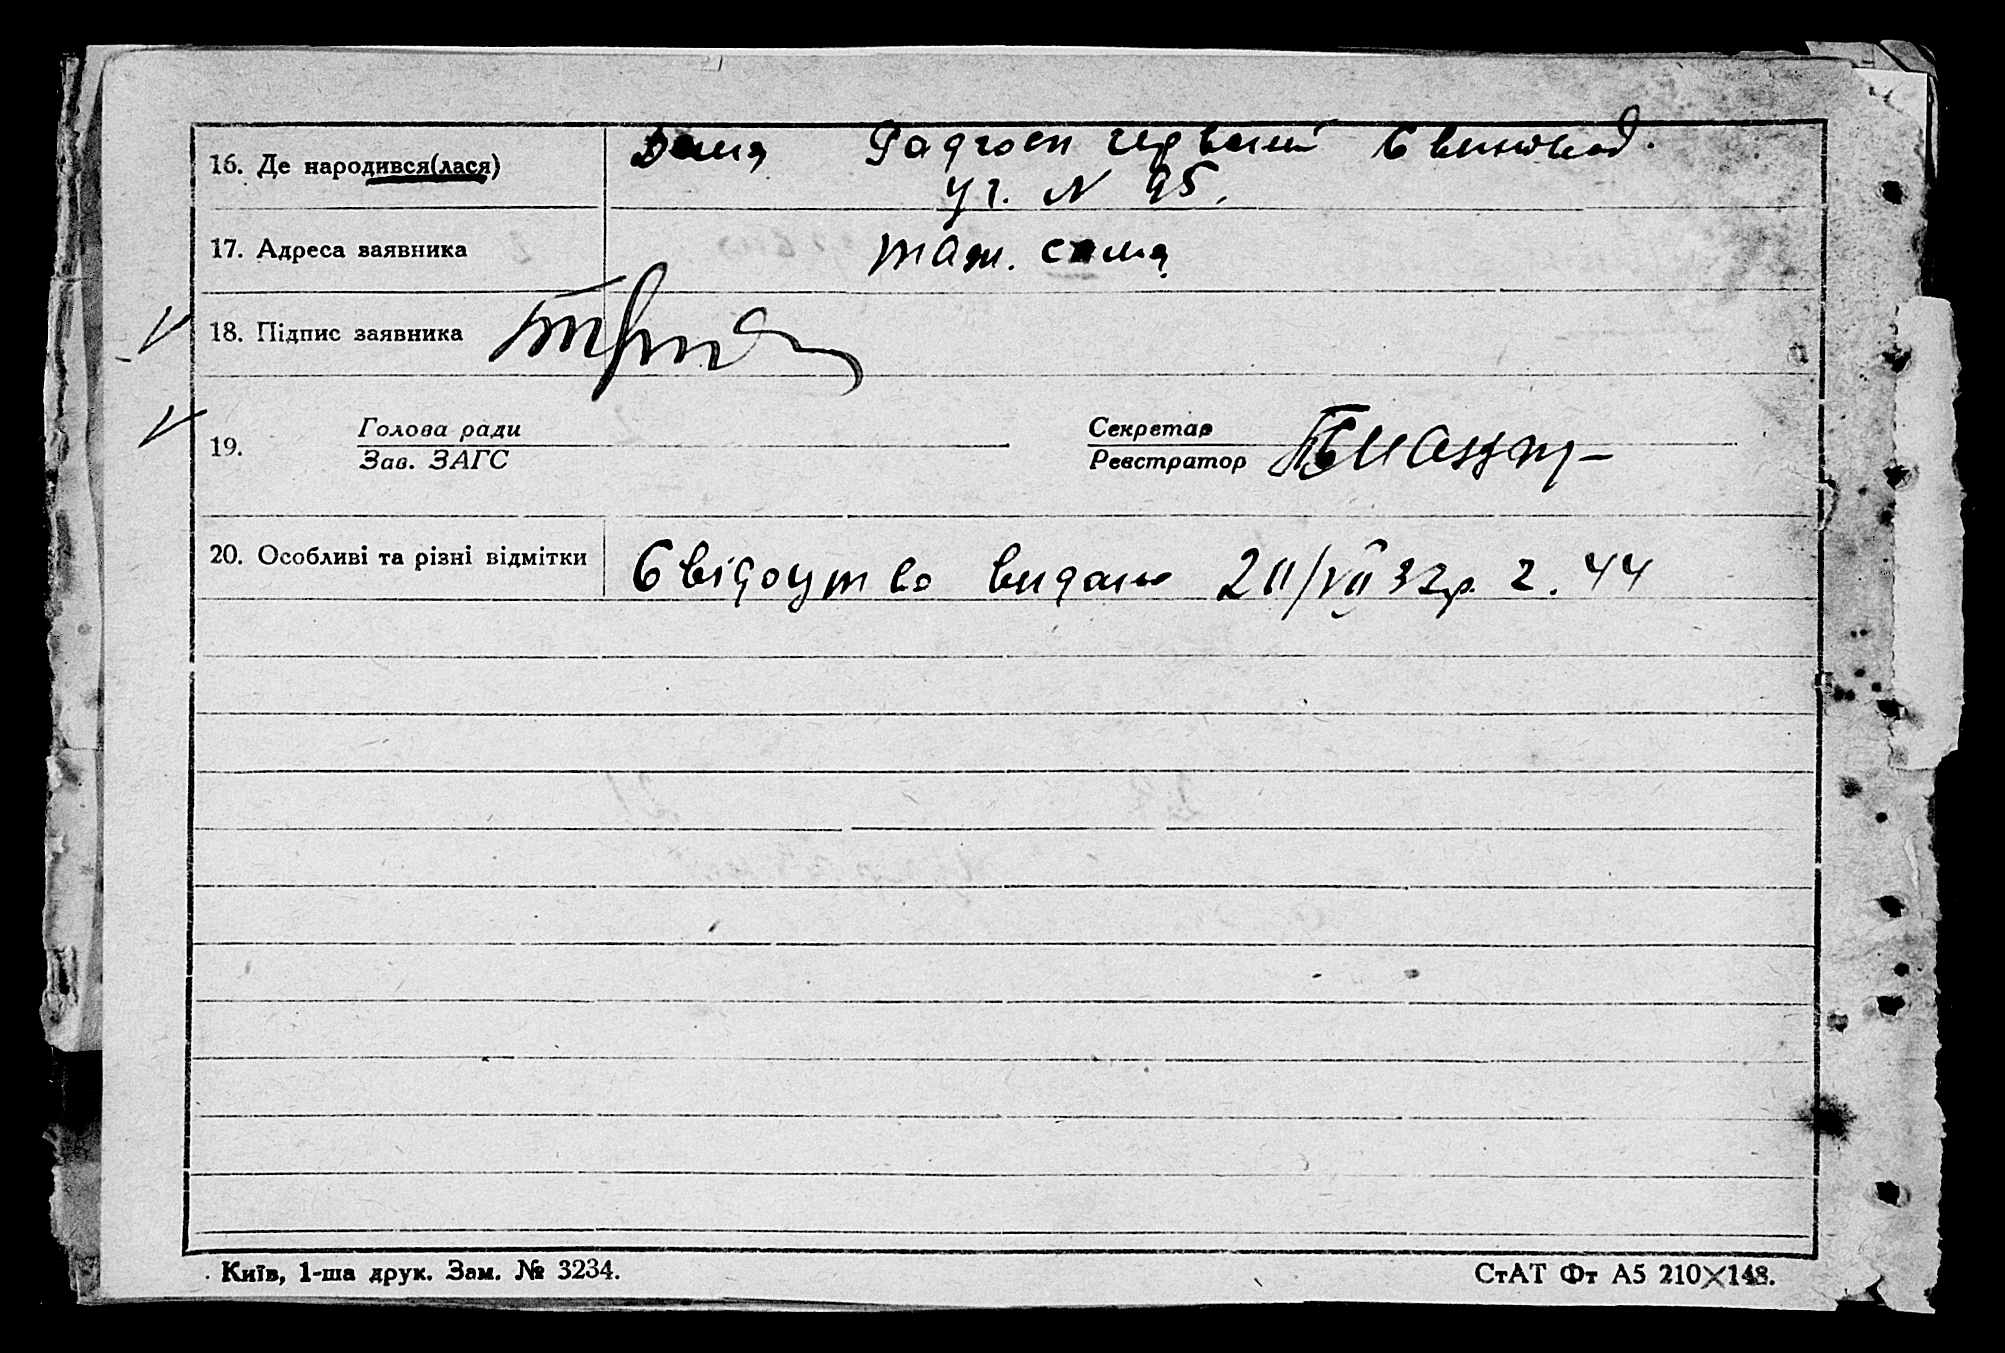 16. Де народився(лася) Дома Радгосп червоний Свиновод.
уч. N 95.
17. Адреса заявника таж. сама
18. Підпис заявника
19. Голова ради Секретар
Зав. ЗАГС Реєстратор
20. Особливі та різні відмітки Свідоцтво видано /VII 32р. 44
Київ, 1-ша друк. Зам. № 3234.
СтАТ Фт А5 210×148.